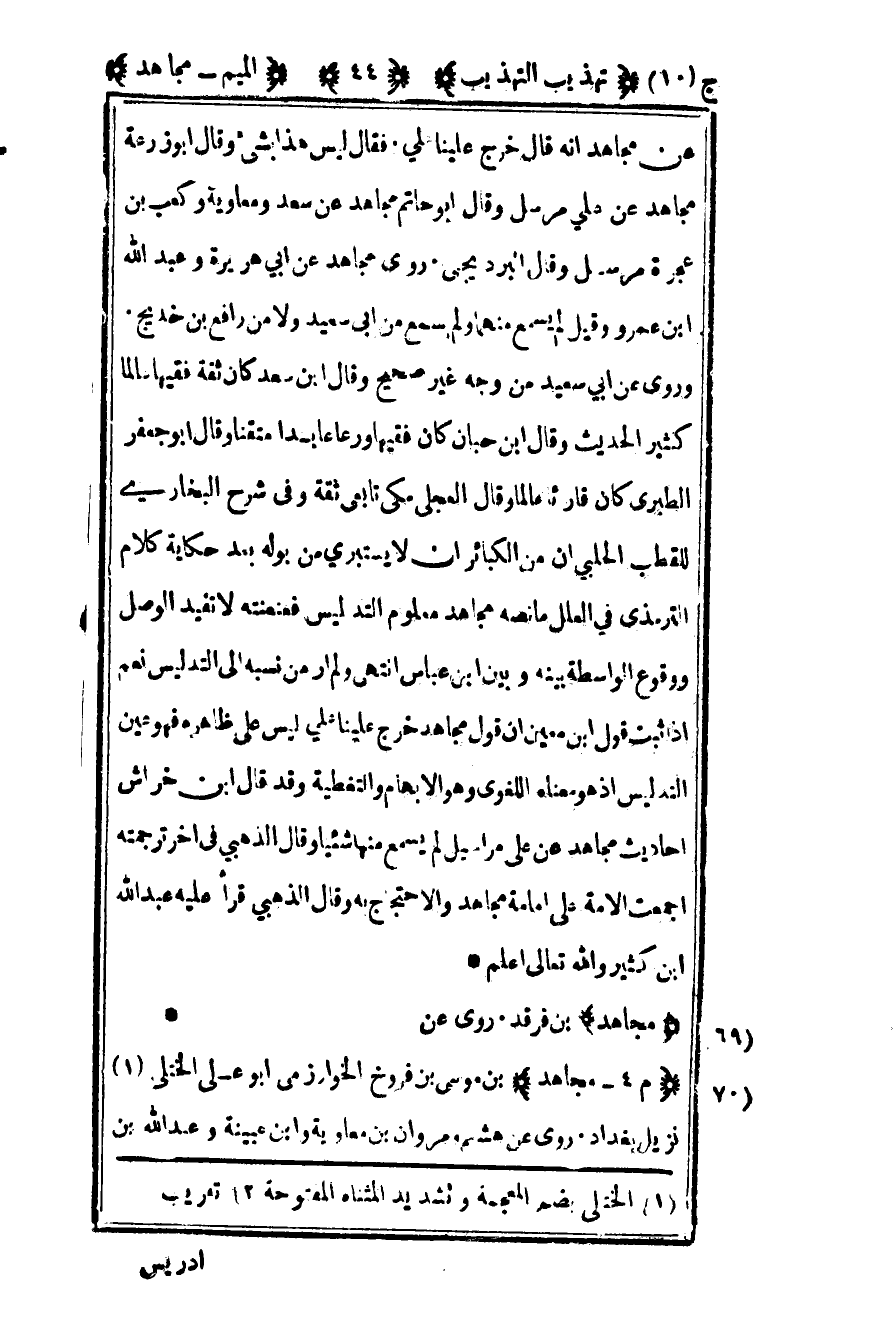 ج (١٠) ﴿ تهذيب التهذيب ﴾ ﴿ ٤٤ ﴾ ﴿ الميم ـ مجاهد ﴾
عن مجاهد انه قال خرج علينا علي · فقال ليس هذا بشئ وقال ابوزرعة
مجاهد عن علي مرسل وقال ابوحاتم مجاهد عن سعد ومعاوية وكعب بن
عجرة مرسل وقال البرديجي · روى مجاهد عن ابي هريرة و عبد الله
ابن عمرو وقيل لم يسمع منهما ولم يسمع من ابى سعيد ولا من رافع بن خديج ·
وروى عن ابي سعيد من وجه غير صحيح وقال ابن سعد كان ثقة فقيها عالما
كثير الحديث وقال ابن حبان كان فقيها ورعا عابدا متقنا وقال ابوجعفر
الطبرى كان قارئا عالما وقال العجلى مكى تابعى ثقة وفى شرح البخارى
للقطب الحلبي ان من الكبائر ان لا يستبري من بوله بعد حكاية كلام
الترمذى في العلل مانصه مجاهد معلوم التدليس فعنعنته لا تفيد الوصل
ووقوع الواسطة بينه وبين ابن عباس انتهى ولم ار من نسبه الى التدليس نعم
اذا ثبت قول ابن معين ان قول مجاهد خرج علينا علي ليس على ظاهره فهو عين
التدليس اذ هو معناه اللغوى وهو الابهام والتغطية وقد قال ابن خراش
احاديث مجاهد عن على مراسيل لم يسمع منها شئيا وقال الذهبي فى اخر ترجمته
اجمعت الامة على امامة مجاهد والاحتجاج به وقال الذهبي قرأ عليه عبدالله
ابن كثير والله تعالى اعلم ●
٦٩) ﴿ مجاهد ﴾ بن فرقد · روى عن ●
٧٠) ﴿ م ٤ ـ مجاهد ﴾ بن موسى بن فروخ الخوارزمى ابو على الختلى (١)
نزيل بغداد · روى عن هشيم ومروان بن معاوية وابن عيينة و عبدالله بن
(١) الختلى بضم المعجمة وتشديد المثناه المفتوحة ١٢ تقريب
ادريس